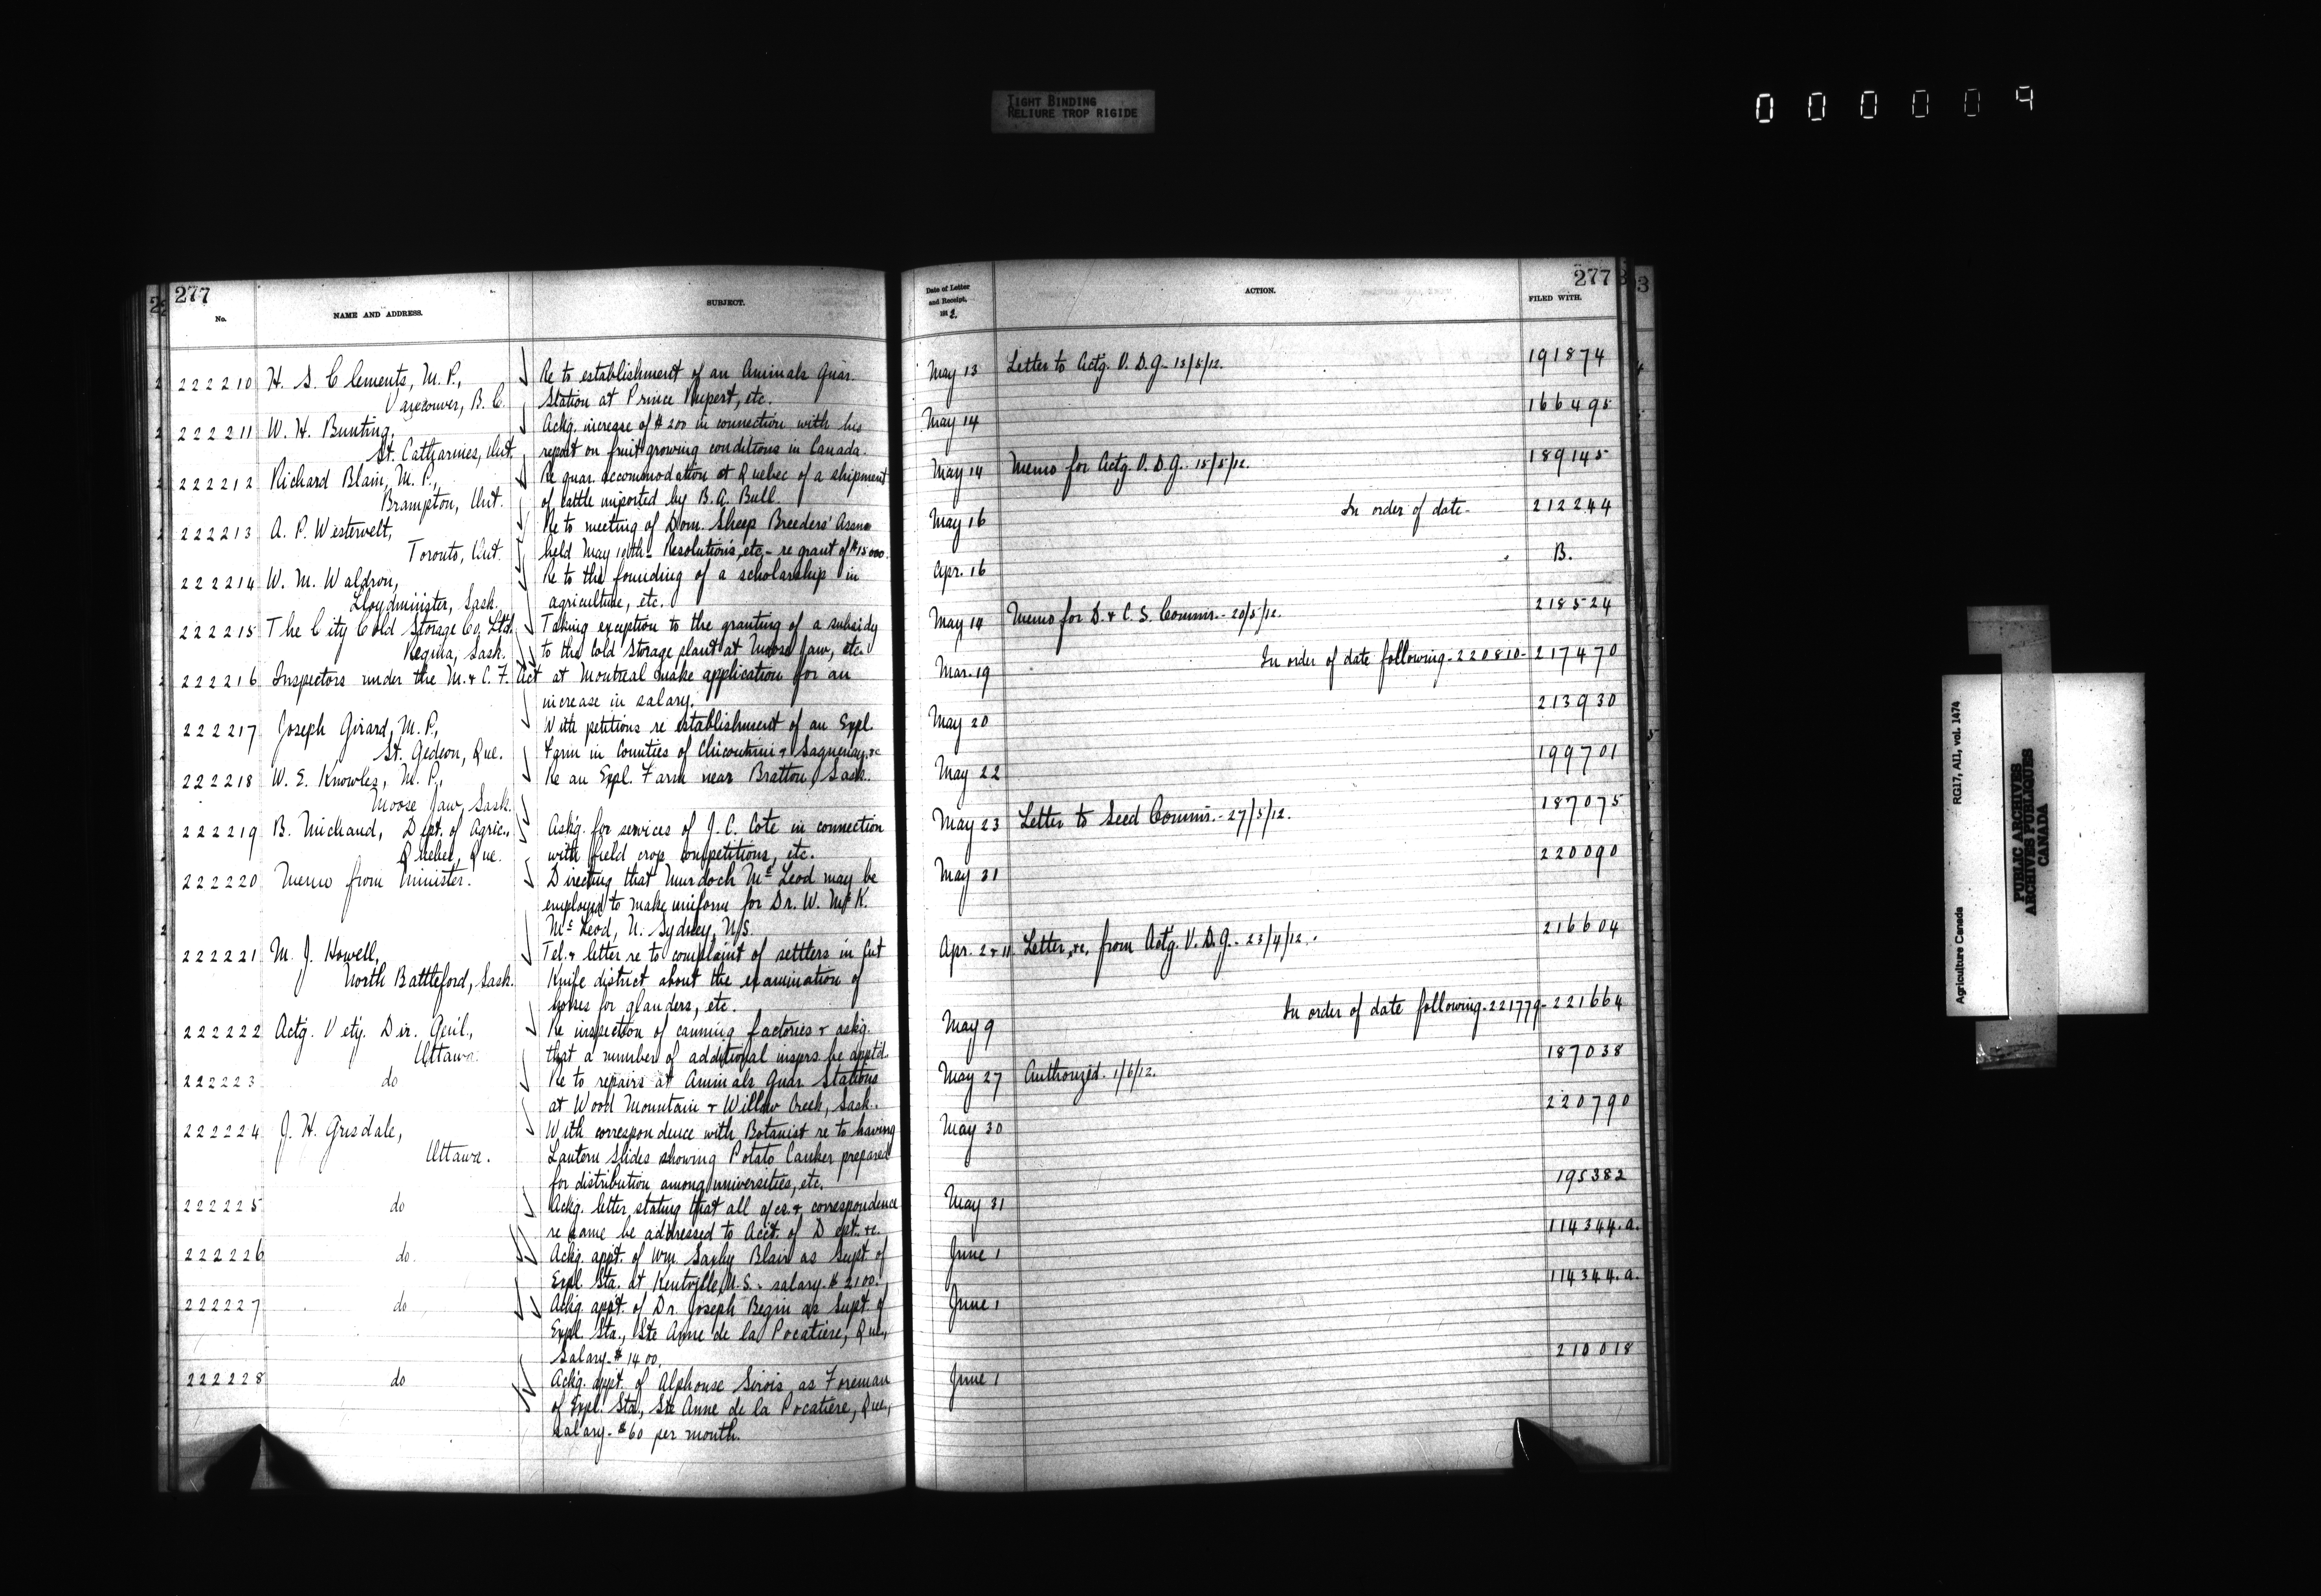 TIGHT BINDING
RELIURE TROP RIGIDE
000009
277
No.
NAME AND ADDRESS.
SUBJECT.
222210 H. S. Clements, M.P., Re to establishment of an Animals Quar.
Vancouver, B.C. Station at Prince Rupert, etc.
222211 W. H. Bunting, Ackg. increase of $200 in connection with his
St. Catharines, Ont. report on fruit growing conditions in Canada.
222212 Richard Blain, M.P., Re quar. accommodation at Quebec of a shipment
Brampton, Ont. of cattle imported by B. A. Bull.
222213 A. P. Westervelt, Re to meeting of Dom. Sheep Breeders' Assn
Toronto, Ont. held May 10th - Resolutions, etc, - re grant of $15000.
222214 W. M. Waldron, Re to the founding of a scholarship in
Lloydminister, Sask. agriculture, etc.
222215 The City Cold Storage Co, Ltd. Taking exception to the granting of a subsidy
Regina, Sask. to the Cold Storage plant at Moose Jaw, etc.
222216 Inspectors under the M. & C. F. Act at Montreal make application for an
increase in salary.
222217 Joseph Girard, M.P., With petitions re establishment of an Expl.
St. Gedeon, Que. Farm in Counties of Chicoutimi & Saguenay, &c
222218 W. E. Knowles, M.P., Re an Expl. Farm near Bratton, Sask.
Moose Jaw, Sask.
222219 B. Michaud, Dept. of Agric., Askg. for services of J. C. Cote in connection
Quebec, Que. with field crop competitions, etc.
222220 Memo from Minister. Directing that Murdoch McLeod may be
employed to make uniform for Dr. W. McK.
McLeod, N. Sydney, N.S.
222221 M. J. Howell, Tel. & letter re to complaint of settlers in Cut
North Battleford, Sask. Knife district about the examination of
horses for glanders, etc.
222222 Actg. Vety. Dir. Genl., Re inspection of canning factories & askg.
Ottawa. that a number of additional insprs. be apptd.
222223 do Re to repairs at Animals Quar. Stations
at Wood Mountain & Willow Creek, Sask.
222224 J. H. Grisdale, With correspondence with Botanist re to having
Ottawa. Lantern Slides showing Potato Canker prepared
for distribution among universities, etc.
222225 do Ackg. letter stating that all a/cs. & correspondence
re same be addressed to Acct. of Dept. &c.
222226 do. Ackg. appt. of Wm. Saxby Blair as Supt. of
Expl. Sta. at Kentville, N.S. - salary $2100.
222227 do Ackg. appt. of Dr. Joseph Begin as Supt. of
Expl. Sta., Ste Anne de la Pocatiere, Que.,
Salary - $1400.
222228 do Ackg. appt. of Alphonse Sirois as Foreman
of Expl. Sta., Ste Anne de la Pocatiere, Que.,
salary - $60 per month.
277
Date of Letter
and Receipt,
191 2.
ACTION.
FILED WITH.
May 13 Letter to Actg. V. D. G. - 13/5/12. 191874
May 14 166495
May 14 Memo for Actg. V. D. G. - 15/5/12. 189145
May 16 In order of date - 212244
Apr. 16 B.
May 14 Memo for D. & C. S. Commr. - 20/5/12. 218524
Mar. 19 In order of date following - 220810 - 217470
May 20 213930
May 22 199701
May 23 Letter to Seed Commr. - 27/5/12. 187075
May 31 220090
Apr. 2 & 11 Letter, &c, from Actg. V. D. G. - 23/4/12. 216604
May 9 In order of date following - 221779 - 221664
May 27 Authorized. 1/6/12. 187038
May 30 220790
May 31 195382
June 1 114344.a.
June 1 114344.a.
June 1 210018
Agriculture Canada RG17, AII, vol. 1474
PUBLIC ARCHIVES
ARCHIVES PUBLIQUES
CANADA